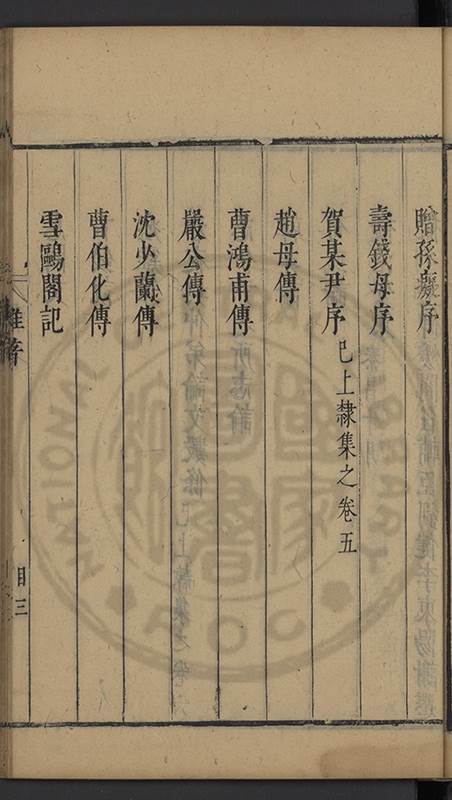 贈孫癡序
壽錢母序
賀某尹序 已上隸集之卷五
趙母傳
曹鴻甫傳
嚴公傳
沈少蘭傳
曹伯化傳
雪鷗閣記
雜著
目三